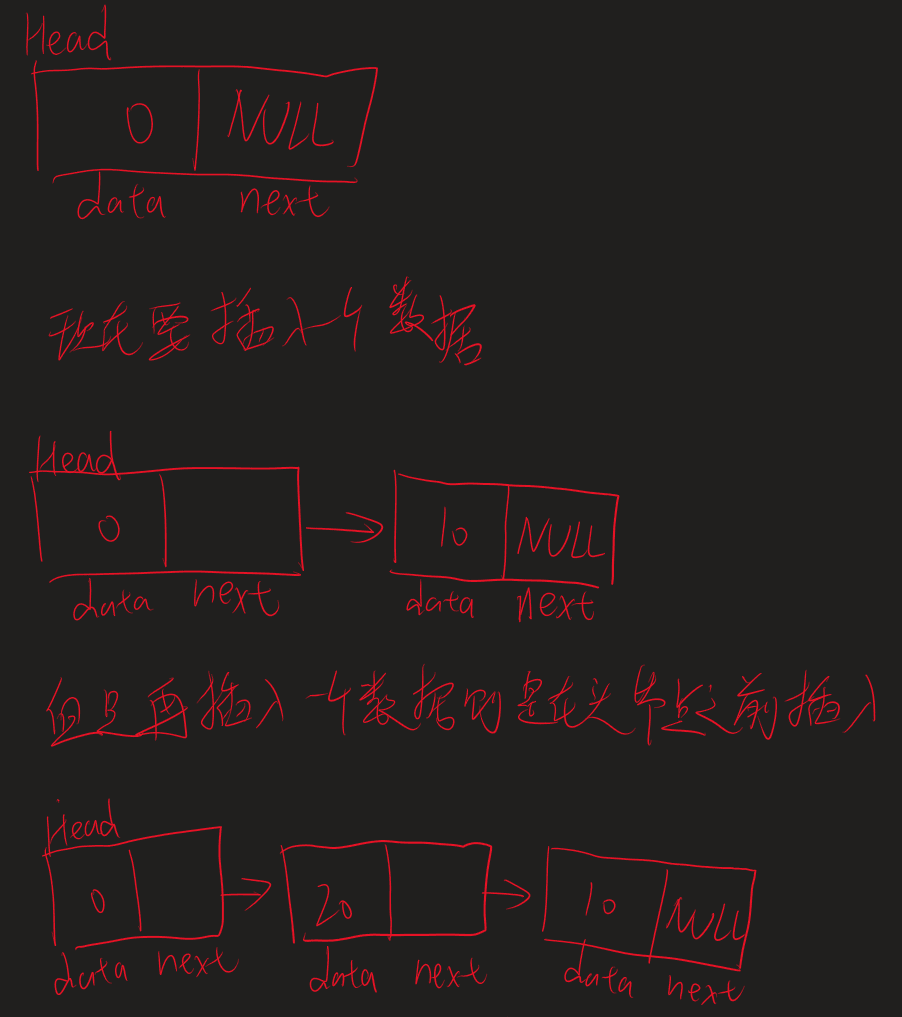 Head
0 NULL
data next
现在要插入一个数据
Head
0 10 NULL
data next data next
再插入一个数据则是在头节点之前插入
Head
0 20 10 NULL
data next data next data next